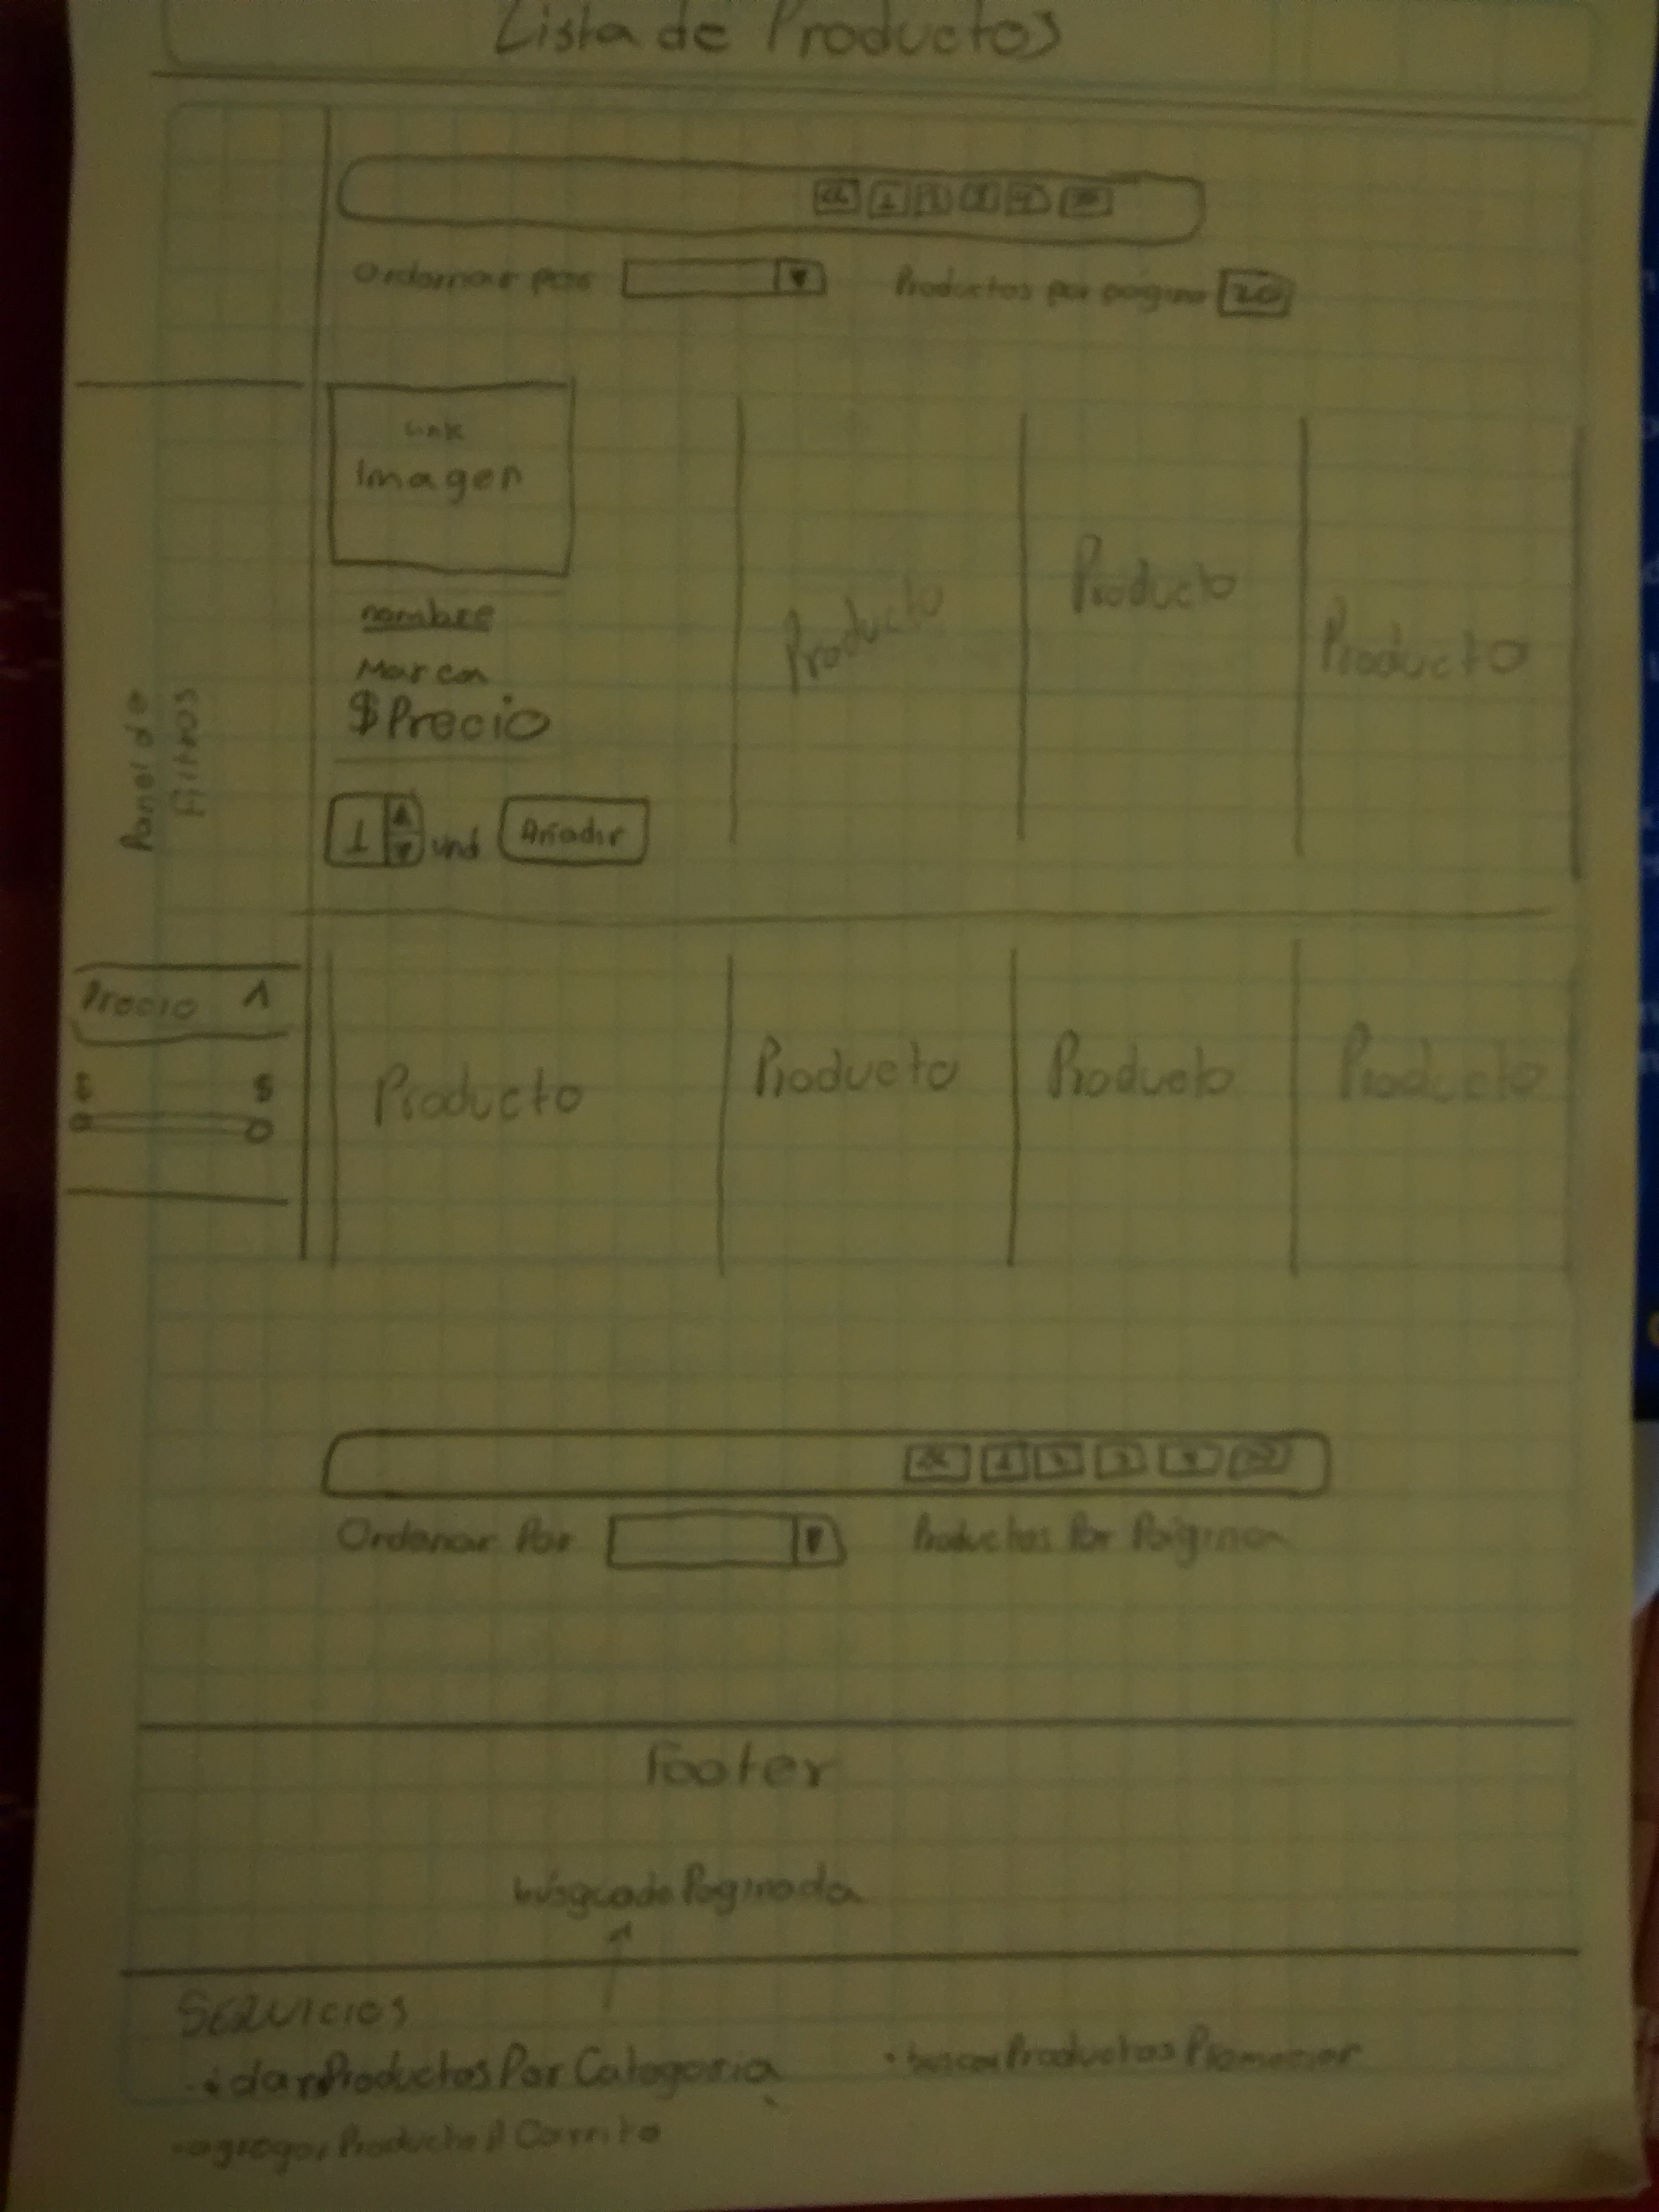 Lista de Productos
<< 1 2 3 4 >>
Ordenar por ▼ Productos por página 20
Link
Imagen
nombre
Marca
$Precio
1 und Añadir
Producto
Producto
Producto
Panel de
Filtros
Precio ^
$ $
Producto Producto Producto Producto
<< 1 2 3 4 >>
Ordenar Por ▼ Productos Por Página
Footer
búsqueda Paginada
Servicios
darProductosPorCategoria
agregarProductoAlCarrito